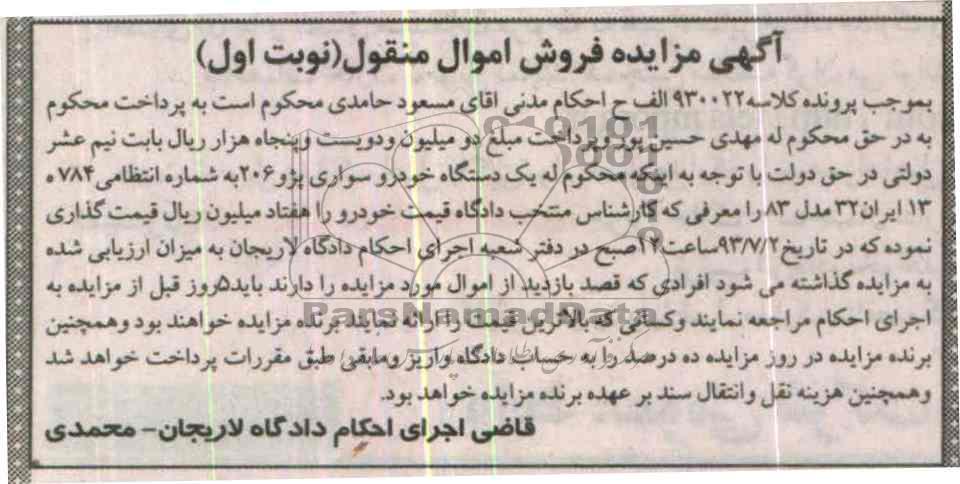 آگهی مزایده فروش اموال منقول(نوبت اول)
بموجب پرونده کلاسه۹۳۰۰۲۲ الف ح احکام مدنی اقای مسعود حامدی محکوم است به پرداخت محکوم
به در حق محکوم له مهدی حسین پور وپرداخت مبلغ دو میلیون ودویست وپنجاه هزار ریال بابت نیم عشر
دولتی در حق دولت با توجه به اینکه محکوم له یک دستگاه خودرو سواری پژو۲۰۶به شماره انتظامی۷۸۴ ه
۱۳ ایران۳۲ مدل ۸۳ را معرفی که کارشناس منتخب دادگاه قیمت خودرو را هفتاد میلیون ریال قیمت گذاری
نموده که در تاریخ۹۳/۷/۲ساعت۱۲صبح در دفتر شعبه اجرای احکام دادگاه لاریجان به میزان ارزیابی شده
به مزایده گذاشته می شود افرادی که قصد بازدید از اموال مورد مزایده را دارند باید۵روز قبل از مزایده به
اجرای احکام مراجعه نمایند وکسانی که بالاترین قیمت را ارائه نمایند برنده مزایده خواهند بود وهمچنین
برنده مزایده در روز مزایده ده درصد را به حساب دادگاه واریز ومابقی طبق مقررات پرداخت خواهد شد
وهمچنین هزینه نقل وانتقال سند بر عهده برنده مزایده خواهد بود.
قاضی اجرای احکام دادگاه لاریجان- محمدی
ParsNamadData